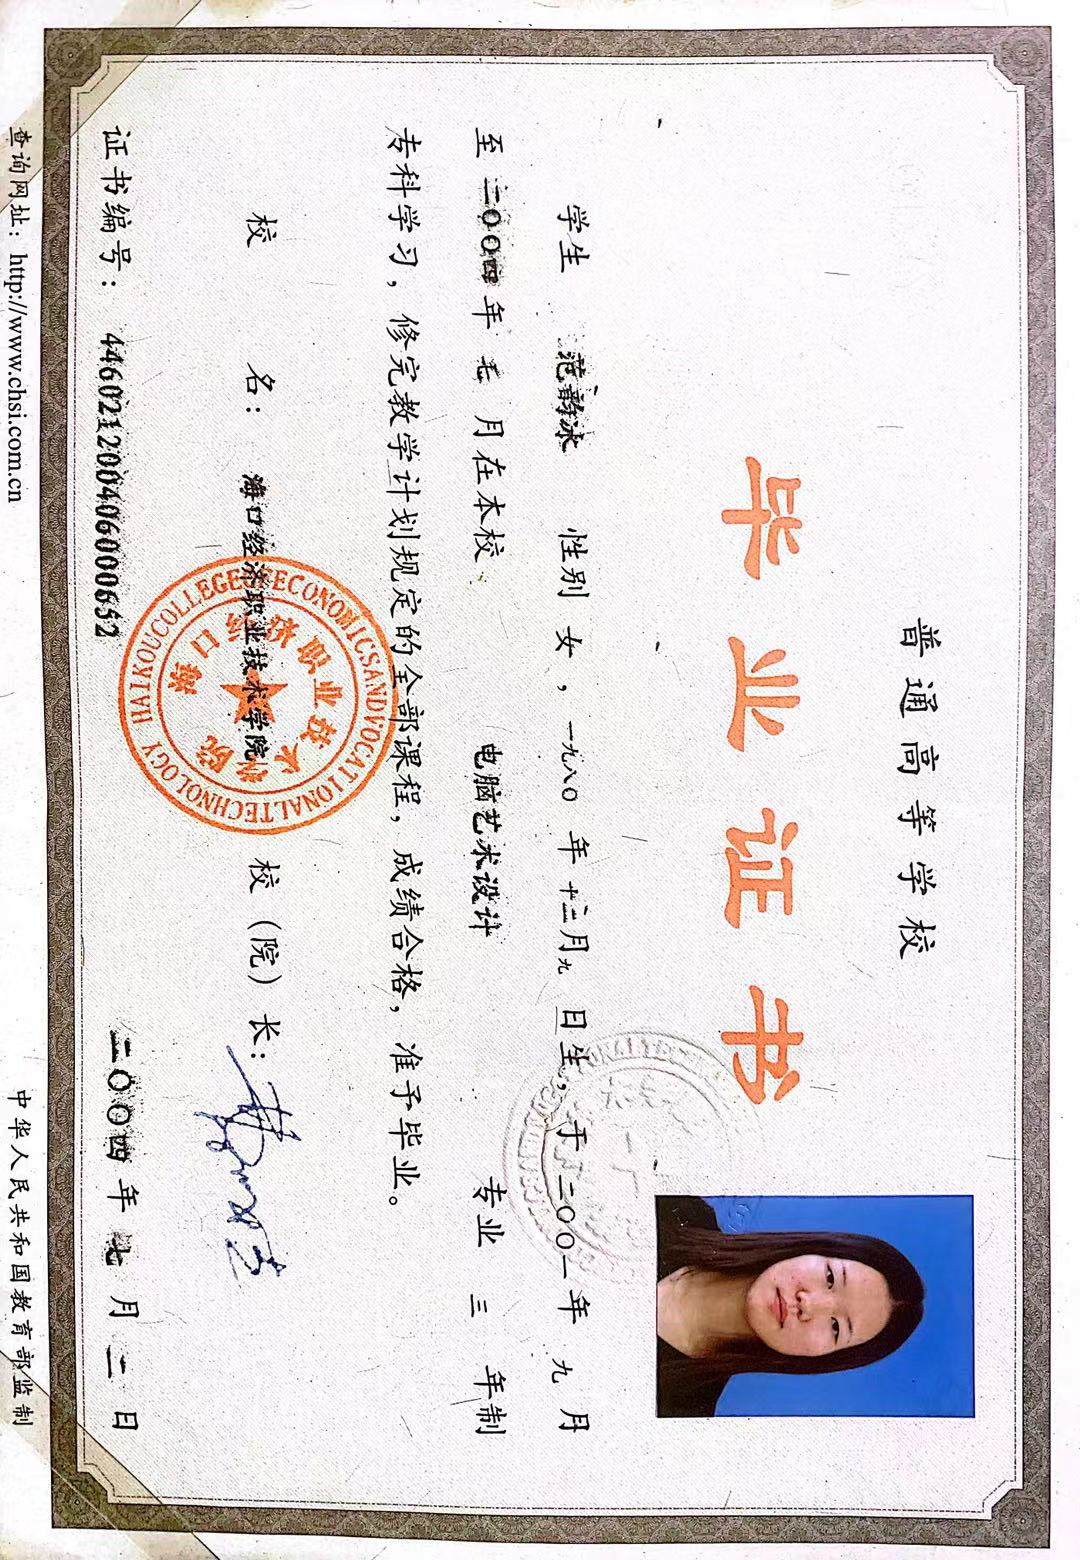 普通高等学校
毕业证书
学生 范韵冰 性别 女，一九八〇年十二月九日生，于二〇〇一年九月
至二〇〇四年七月在本校 电脑艺术设计 专业 三 年制
专科学习，修完教学计划规定的全部课程，成绩合格，准予毕业。
校 名：海口经济职业技术学院 校（院）长：
HAIKOU COLLEGE OF ECONOMICS AND VOCATIONAL TECHNOLOGY
海口经济职业技术学院
证书编号：446021200406000652 二〇〇四年七月二日
查询网址：http://www.chsi.com.cn 中华人民共和国教育部监制